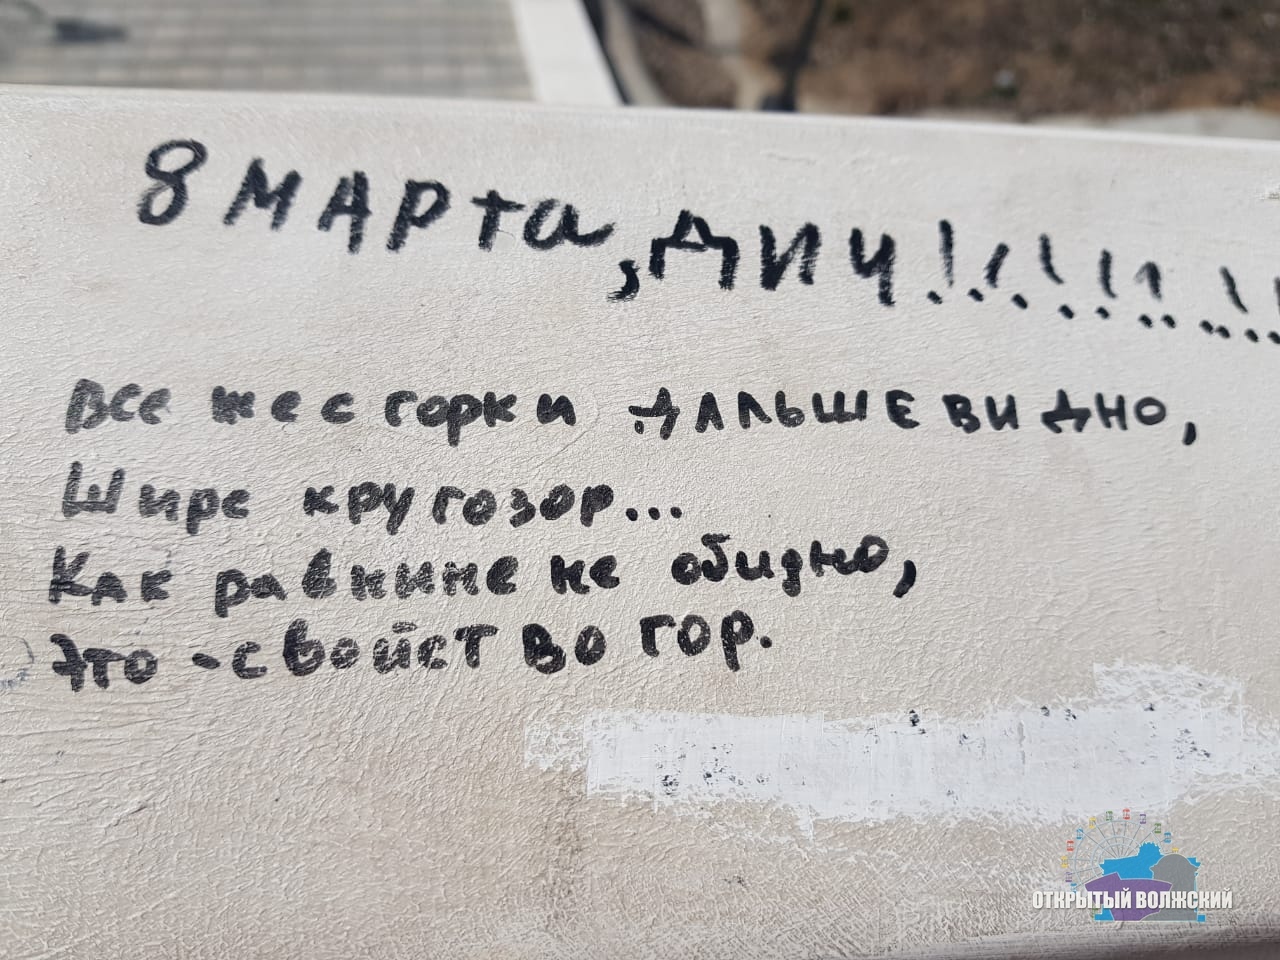 8 марта, дич!!!!!!!!
Все же с горки дальше видно,
Шире кругозор...
Как равнине не обидно,
Это - свойство гор.
ОТКРЫТЫЙ ВОЛЖСКИЙ